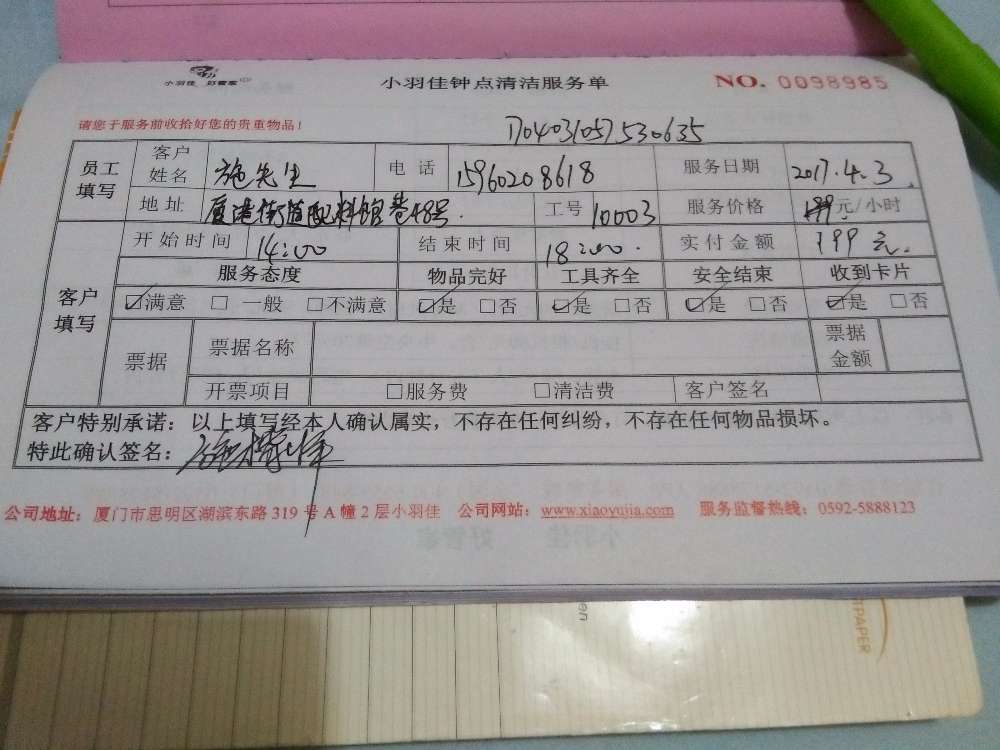 小羽佳 好管家
小羽佳钟点清洁服务单
NO. 0098985
请您于服务前收拾好您的贵重物品!
1704031057530635
员工填写 客户姓名 施先生 电话 15960208618 服务日期 2017.4.3.
地址 厦港街道配料馆巷48号. 工号 10003 服务价格 元/小时
客户填写 开始时间 14:00 结束时间 18:00. 实付金额 199元.
服务态度 物品完好 工具齐全 安全结束 收到卡片
☑满意 □一般 □不满意 ☑是 □否 ☑是 □否 ☑是 □否 ☑是 □否
票据 票据名称 票据金额
开票项目 □服务费 □清洁费 客户签名
客户特别承诺:以上填写经本人确认属实,不存在任何纠纷,不存在任何物品损坏。
特此确认签名:施
公司地址:厦门市思明区湖滨东路319号A幢2层小羽佳 公司网站:www.xiaoyujia.com 服务监督热线:0592-5888123